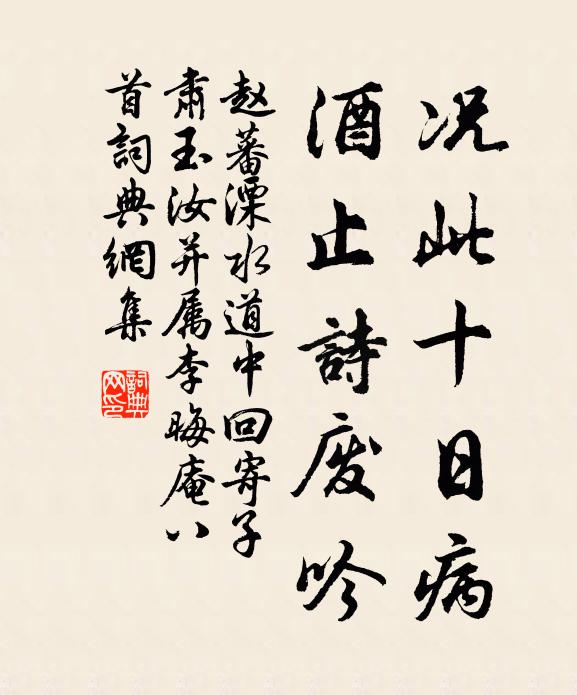 况此十日病
酒止詩废吟
赵蕃溧水道中回寄子
肃玉汝并属李晦庵八
首詞典網集
詞典网印